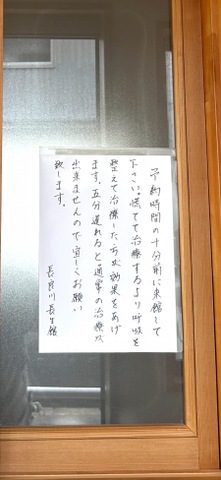 予約時間の十分前に来館して
下さい。慌てて治療するより呼吸を
整えて治療した方が効果をあげ
ます。五分遅れると通常の治療が
出来ませんので宜しくお願い
致します。
長良川長生館